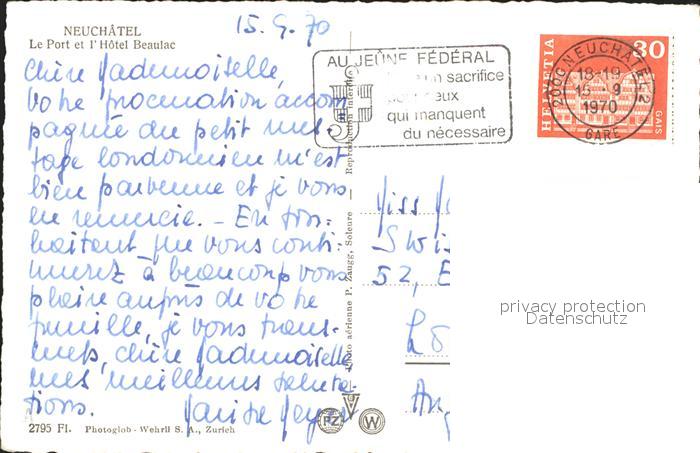 NEUCHÂTEL
Le Port et l'Hôtel Beaulac
15.9.70
Chère Mademoiselle,
Votre procuration accom-
pagnée du petit mes-
sage londonien m'est
bien parvenue et je vous
en remercie. – En sou-
haitant que vous conti-
nuerez à beaucoup vous
plaire auprès de votre
famille, je vous trans-
mets, chère Mademoiselle
mes meilleures saluta-
tions.
2795 Fl. Photoglob - Wehrli S. A., Zurich
Photo aérienne P. Zaugg, Soleure
AU JEÛNE FÉDÉRAL
un sacrifice
qui manquent
du nécessaire
HELVETIA
30
GAIS
2000 NEUCHATEL 2
18-19
15.-9.
1970
GARE
Miss
Swis
52, E
Lo
Ang
PZ
W
privacy protection
Datenschutz